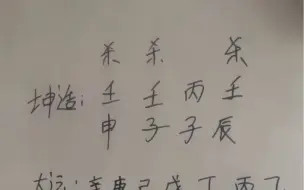 杀 杀 杀
坤造: 壬 壬 丙 壬
申 子 子 辰
大运: 辛 庚 己 戊 丁 丙 乙